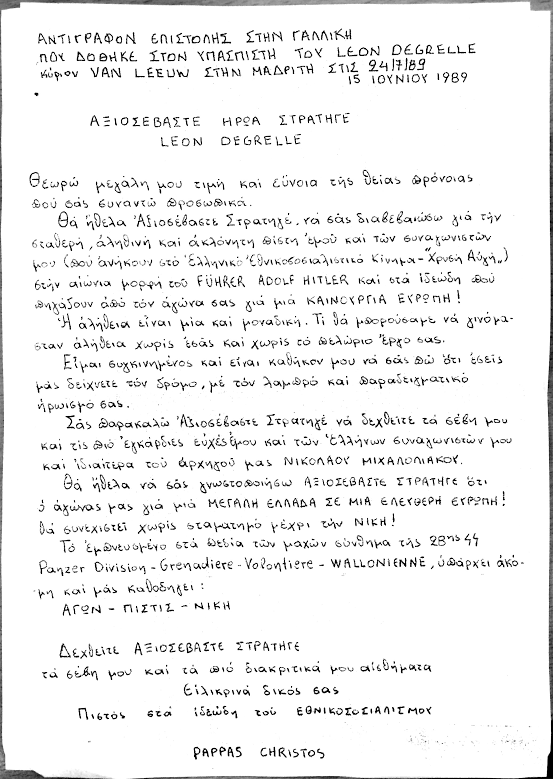 ΑΝΤΙΓΡΑΦΟΝ ΕΠΙΣΤΟΛΗΣ ΣΤΗΝ ΓΑΛΛΙΚΗ
ΠΟΥ ΔΟΘΗΚΕ ΣΤΟΝ ΥΠΑΣΠΙΣΤΗ ΤΟΥ LEON DEGRELLE
κύριον VAN LEEUW ΣΤΗΝ ΜΑΔΡΙΤΗ ΣΤΙΣ 24/7/89
15 ΙΟΥΝΙΟΥ 1989
ΑΞΙΟΣΕΒΑΣΤΕ ΗΡΩΑ ΣΤΡΑΤΗΓΕ
LEON DEGRELLE
Θεωρώ μεγάλη μου τιμή και εύνοια τής θείας πρόνοιας
πού σάς συναντώ προσωπικά.
Θά ήθελα Ἀξιοσέβαστε Στρατηγέ, νά σάς διαβεβαιώσω γιά τήν
σταθερή, ἀληθινή καί ἀκλόνητη πίστη ἐμού καί τών συναγωνιστών
μου (πού ἀνήκουν στό Ἑλληνικό Ἐθνικοσοσιαλιστικό Κίνημα-"Χρυσή Αὐγή")
στήν αἰώνια μορφή τού FÜHRER ADOLF HITLER καί στά ἰδεώδη πού
πηγάζουν ἀπό τόν ἀγώνα σας γιά μιά ΚΑΙΝΟΥΡΓΙΑ ΕΥΡΩΠΗ!
Ἡ ἀλήθεια εἶναι μία καί μοναδική. Τί θά μπορούσαμε νά γινόμα-
σταν ἀλήθεια χωρίς ἐσάς καί χωρίς τό πελώριο ἔργο σας.
Εἶμαι συγκινημένος καί εἶναι καθήκον μου νά σάς πώ ὅτι ἐσείς
μάς δείχνετε τόν δρόμο, μέ τόν λαμπρό καί παραδειγματικό
ἡρωισμό σας.
Σάς παρακαλώ Ἀξιοσέβαστε Στρατηγέ νά δεχθείτε τά σέβη μου
καί τίς πιό ἐγκάρδιες εὐχές ἐμού καί τών Ἑλλήνων συναγωνιστών μου
καί ἰδιαίτερα τού ἀρχηγού μας ΝΙΚΟΛΑΟΥ ΜΙΧΑΛΟΛΙΑΚΟΥ.
Θά ἤθελα νά σάς γνωστοποιήσω ΑΞΙΟΣΕΒΑΣΤΕ ΣΤΡΑΤΗΓΕ ὅτι
ὁ ἀγώνας μας γιά μιά ΜΕΓΑΛΗ ΕΛΛΑΔΑ ΣΕ ΜΙΑ ΕΛΕΥΘΕΡΗ ΕΥΡΩΠΗ!
θά συνεχιστεί χωρίς σταματημό μέχρι τήν ΝΙΚΗ!
Τό ἐμπνευσμένο στά πεδία τών μαχών σύνθημα τής 28ης 44
Panzer Division-Grenadiere-Volontiere-WALLONIENNE, ὑπάρχει ἀκό-
μη καί μάς καθοδηγεί:
ΑΓΩΝ - ΠΙΣΤΙΣ - ΝΙΚΗ
Δεχθείτε ΑΞΙΟΣΕΒΑΣΤΕ ΣΤΡΑΤΗΓΕ
τά σέβη μου καί τά πιό διακριτικά μου αἰσθήματα
Εἰλικρινά δικός σας
Πιστός στά ἰδεώδη τού ΕΘΝΙΚΟΣΟΣΙΑΛΙΣΜΟΥ
PAPPAS CHRISTOS